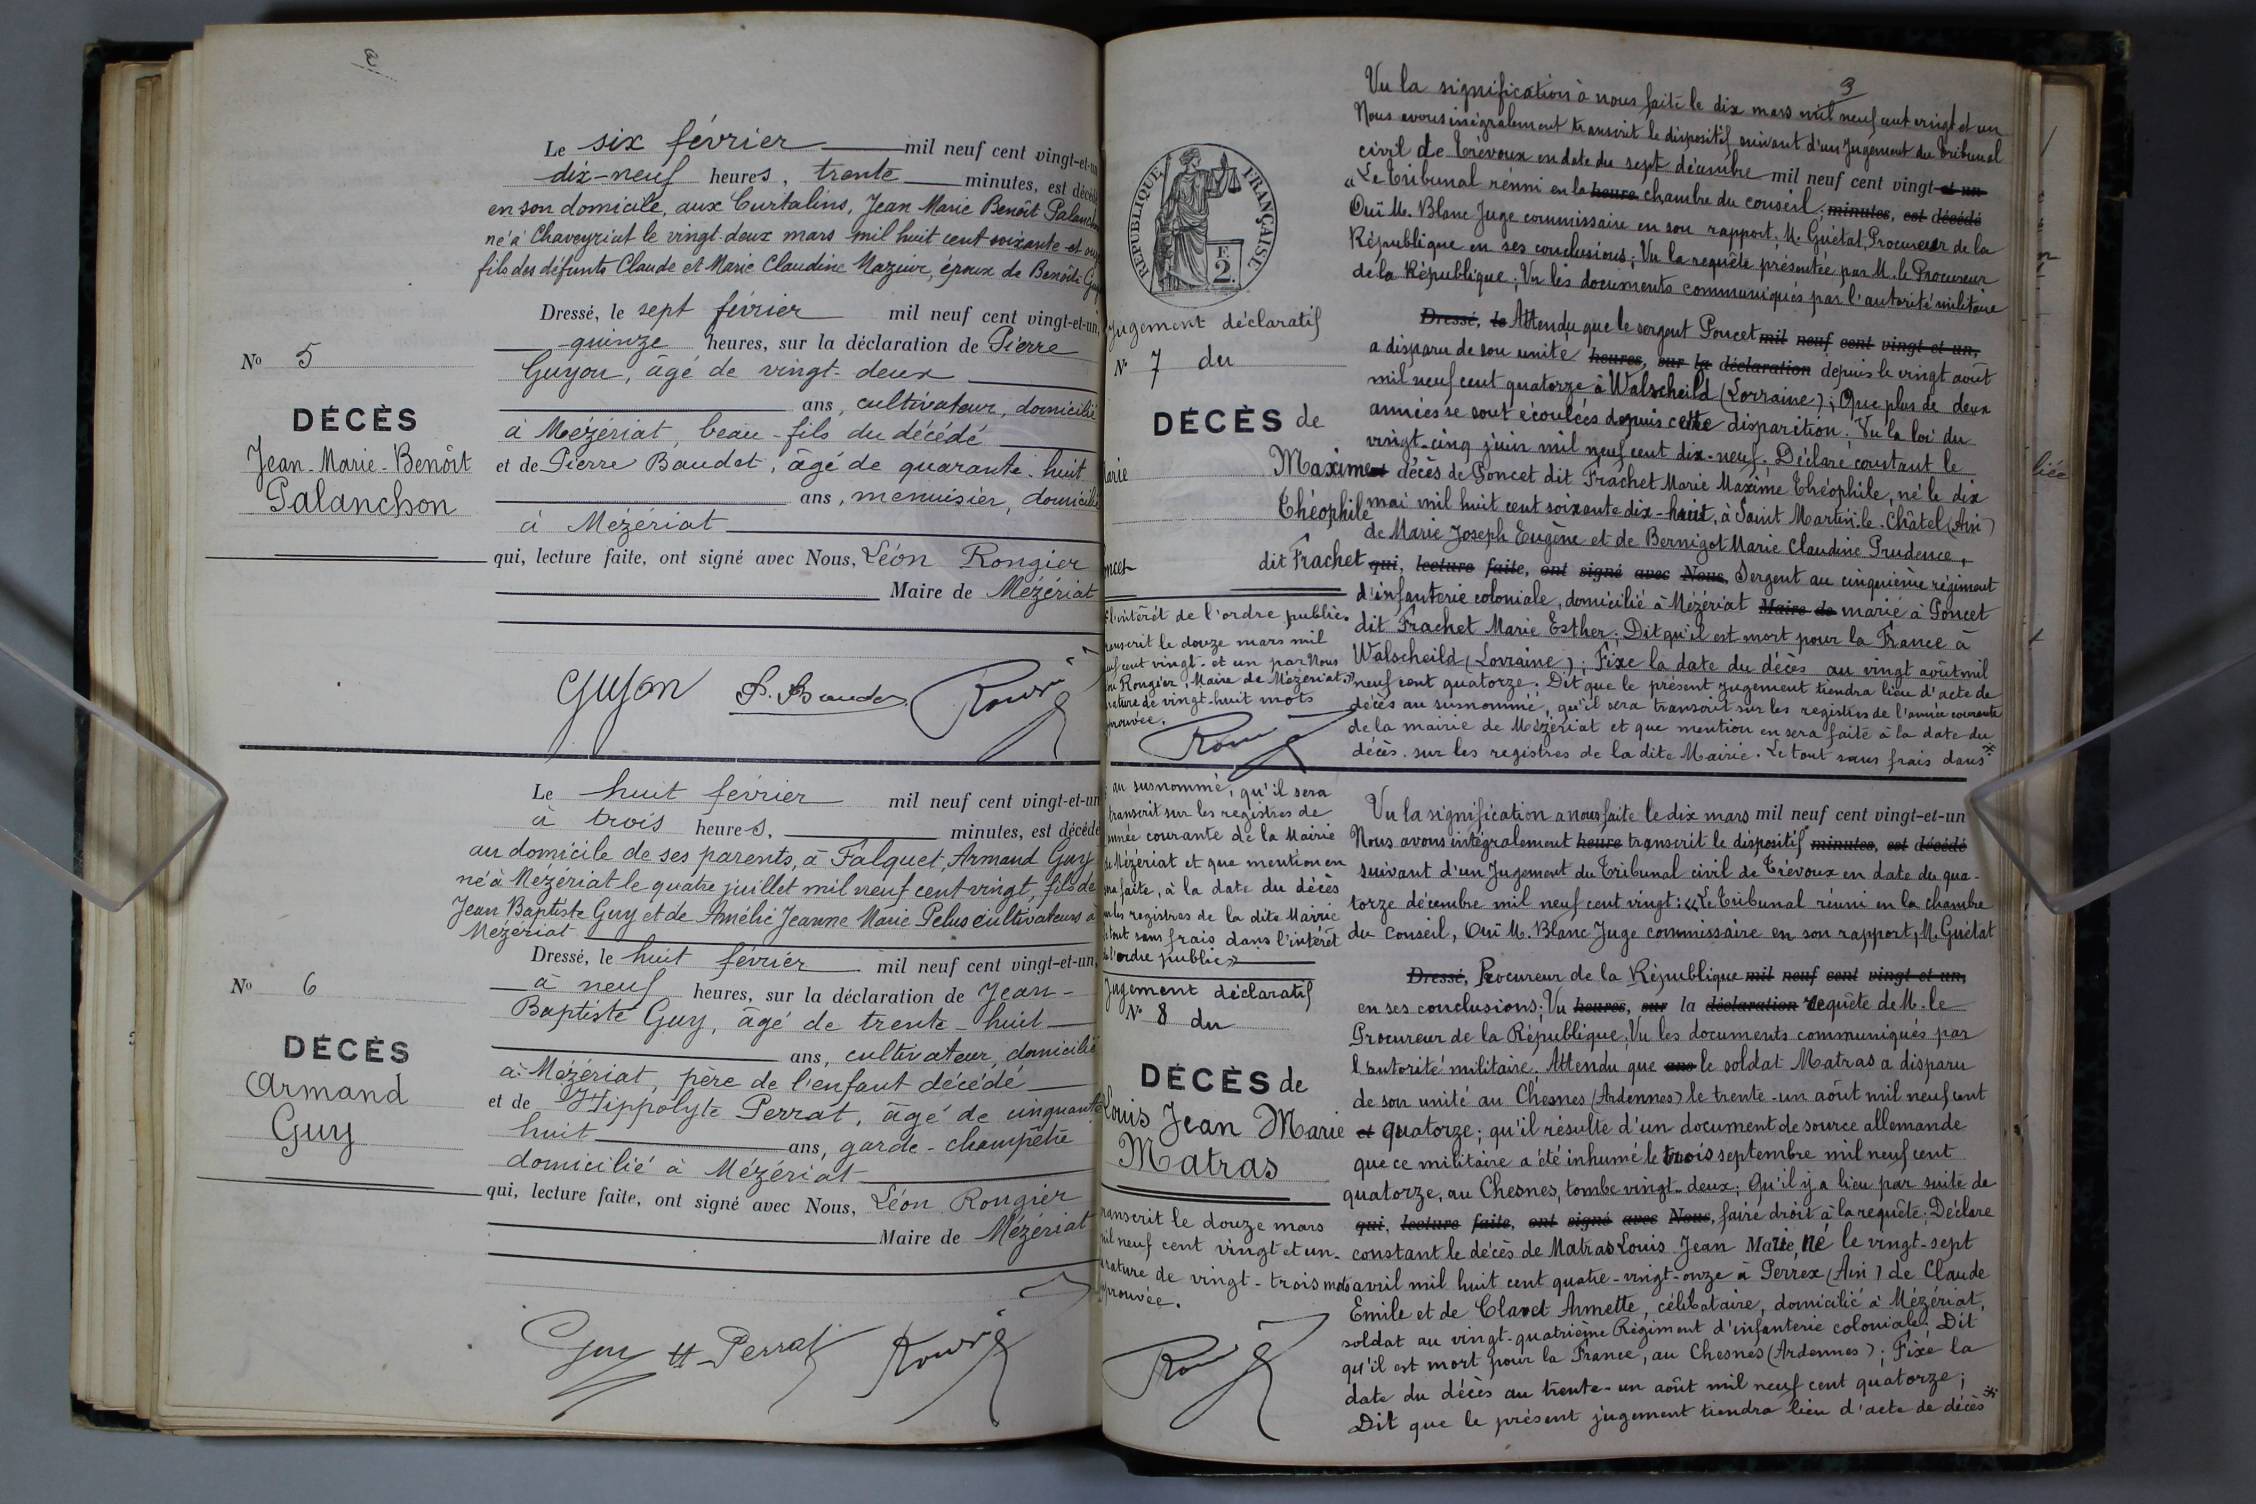 Le six février mil neuf cent vingt-et-un
dix-neuf heures, trente minutes, est décédé
en son domicile, aux Curtalins, Jean Marie Benoît Palanchon
né à Chaveyriat le vingt-deux mars mil huit cent soixante et onze
fils des défunts Claude et Marie Claudine Mazuir, époux de Benoîte
Dressé, le sept février mil neuf cent vingt-et-un,
quinze heures, sur la déclaration de Pierre
Guyon, âgé de vingt-deux
ans, cultivateur, domicilié
à Mézériat, beau-fils du décédé
et de Pierre Baudet, âgé de quarante-huit
ans, menuisier, domicilié
à Mézériat
qui, lecture faite, ont signé avec Nous, Léon Rongier
Maire de Mézériat
No 5
DÉCÈS
Jean-Marie-Benôit
Palanchon
Guyon P. Baudet
Le huit février mil neuf cent vingt-et-un
à trois heures, minutes, est décédé
au domicile de ses parents, à Falquet, Armand Guy
né à Mézériat le quatre juillet mil neuf cent vingt, fils de
Jean Baptiste Guy et de Amélie Jeanne Marie Pelus cultivateurs à
Mézériat
Dressé, le huit février mil neuf cent vingt-et-un,
à neuf heures, sur la déclaration de Jean-
Baptiste Guy, âgé de trente-huit
ans, cultivateur, domicilié
à Mézériat, père de l'enfant décédé
et de Hippolyte Perrat, âgé de cinquante
huit ans, garde-champêtre
domicilié à Mézériat
qui, lecture faite, ont signé avec Nous, Léon Rongier
Maire de Mézériat
No 6
DÉCÈS
Armand
Guy
Guy H Perrat
3
RÉPUBLIQUE FRANÇAISE
F.
2.
Jugement déclaratif
No 7 du
DÉCÈS de
Marie Maxime
Théophile
Poncet dit Frachet
l'intérêt de l'ordre public.
Transcrit le douze mars mil
neuf cent vingt-et un par Nous
Rongier, Maire de Mézériat.»
Rature de vingt-huit mots
approuvée.
Vu la signification à nous faite le dix mars mil neuf cent vingt et un
Nous avons intégralement transcrit le dispositif suivant d'un Jugement du Tribunal
civil de Trévoux en date du sept décembre mil neuf cent vingt et un
«Le Tribunal réuni en la heure chambre du conseil; minutes, est décédé
Ouï M. Blanc Juge commissaire en son rapport, M. Guétat, Procureur de la
République en ses conclusions; Vu la requête présentée par M. le Procureur
de la République; Vu les documents communiqués par l'autorité militaire
Dressé, le Attendu que le sergent Poncet mil neuf cent vingt et un,
a disparu de son unité heures, sur la déclaration depuis le vingt août
mil neuf cent quatorze à Walscheild (Lorraine); Que plus de deux
années se sont écoulées depuis cette disparition; Vu la loi du
vingt-cinq juin mil neuf cent dix-neuf. Déclare constant le
décès de Poncet dit Frachet Marie Maxime Théophile, né le dix
mai mil huit cent soixante dix-huit, à Saint Martin-le-Châtel (Ain)
de Marie Joseph Eugène et de Bernigot Marie Claudine Prudence,
qui, lecture faite, ont signé avec Nous, Sergent au cinquième régiment
d'infanterie coloniale, domicilié à Mézériat Maire de marié à Poncet
dit Frachet Marie Esther; Dit qu'il est mort pour la France à
Walscheild (Lorraine); Fixe la date du décès au vingt août mil
neuf cent quatorze; Dit que le présent jugement tiendra lieu d'acte de
décès au susnommé, qu'il sera transcrit sur les registres de l'année courante
de la mairie de Mézériat et que mention en sera faite à la date du
décès sur les registres de la dite Mairie. Le tout sans frais dans
au susnommé, qu'il sera
transcrit sur les registres de
l'année courante de la Mairie
de Mézériat et que mention en
sera faite, à la date du décès
sur les registres de la dite Mairie
Le tout sans frais dans l'intérêt
de l'ordre public»
Jugement déclaratif
No 8 du
DÉCÈS de
Louis Jean Marie
Matras
Transcrit le douze mars
mil neuf cent vingt et un.
Rature de vingt-trois mots
approuvée.
Vu la signification a nous faite le dix mars mil neuf cent vingt-et-un
Nous avons intégralement heure transcrit le dispositif minutes, est décédé
suivant d'un Jugement du Tribunal civil de Trévoux en date du qua-
torze décembre mil neuf cent vingt: «Le Tribunal réuni en la chambre
du conseil, Ouï M. Blanc Juge commissaire en son rapport, M. Guétat
Dressé, Procureur de la République mil neuf cent vingt-et-un,
en ses conclusions; Vu heures, sur la déclaration requête de M. le
Procureur de la République, Vu les documents communiqués par
l'autorité militaire; Attendu que ans le soldat Matras a disparu
de son unité au Chesnes (Ardennes) le trente-un août mil neuf cent
et quatorze; qu'il résulte d'un document de source allemande
que ce militaire a été inhumé le trois septembre mil neuf cent
quatorze, au Chesnes, tombe vingt-deux; Qu'il y a lieu par suite de
qui, lecture faite, ont signé avec Nous, faire droit à la requête; Déclare
constant le décès de Matras Louis Jean Marie, né le vingt-sept
avril mil huit cent quatre-vingt-onze à Perrex (Ain) de Claude
Emile et de Claret Annette, célibataire, domicilié à Mézériat,
soldat au vingt-quatrième Régiment d'infanterie coloniale; Dit
qu'il est mort pour la France, au Chesnes (Ardennes); Fixe la
date du décès au trente-un août mil neuf cent quatorze;
Dit que le présent jugement tiendra lieu d'acte de décès